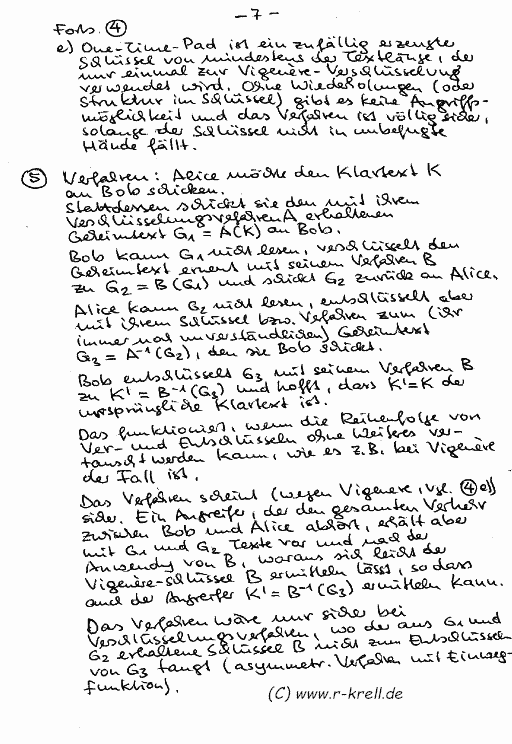 – 7 –
Forts. ④
e) One-Time-Pad ist ein zufällig erzeugter
Schlüssel von mindestens der Textlänge, der
nur einmal zur Vigenère-Verschlüsselung
verwendet wird. Ohne Wiederholungen (oder
Struktur im Schlüssel) gibt es keine Angriffs-
möglichkeit und das Verfahren ist völlig sicher,
solange der Schlüssel nicht in unbefugte
Hände fällt.
⑤ Verfahren: Alice möchte den Klartext K
an Bob schicken.
Stattdessen schickt sie den mit ihrem
Verschlüsselungsverfahren A erhaltenen
Geheimtext G₁ = A(K) an Bob.
Bob kann G₁ nicht lesen, verschlüsselt den
Geheimtext erneut mit seinem Verfahren B
zu G₂ = B(G₁) und schickt G₂ zurück an Alice.
Alice kann G₂ nicht lesen, entschlüsselt aber
mit ihrem Schlüssel bzw. Verfahren zum (ihr
immer noch unverständlichen) Geheimtext
G₃ = A⁻¹(G₂), den sie Bob schickt.
Bob entschlüsselt G₃ mit seinem Verfahren B
zu K' = B⁻¹(G₃) und hofft, dass K'=K der
ursprüngliche Klartext ist.
Das funktioniert, wenn die Reihenfolge von
Ver- und Entschlüsseln ohne Weiteres ver-
tauscht werden kann, wie es z.B. bei Vigenère
der Fall ist.
Das Verfahren scheint (wegen Vigenère, vgl. ④e))
sicher. Ein Angreifer, der den gesamten Verkehr
zwischen Bob und Alice abhört, erhält aber
mit G₁ und G₂ Texte vor und nach der
Anwendung von B, woraus sich leicht der
Vigenère-Schlüssel B ermitteln lässt, so dass
auch der Angreifer K' = B⁻¹(G₃) ermitteln kann.
Das Verfahren wäre nur sicher bei
Verschlüsselungsverfahren, wo der aus G₁ und
G₂ erhaltene Schlüssel B nicht zum Entschlüsseln
von G₃ taugt (asymmetr. Verfahren mit Einweg-
funktion).
(C) www.r-krell.de